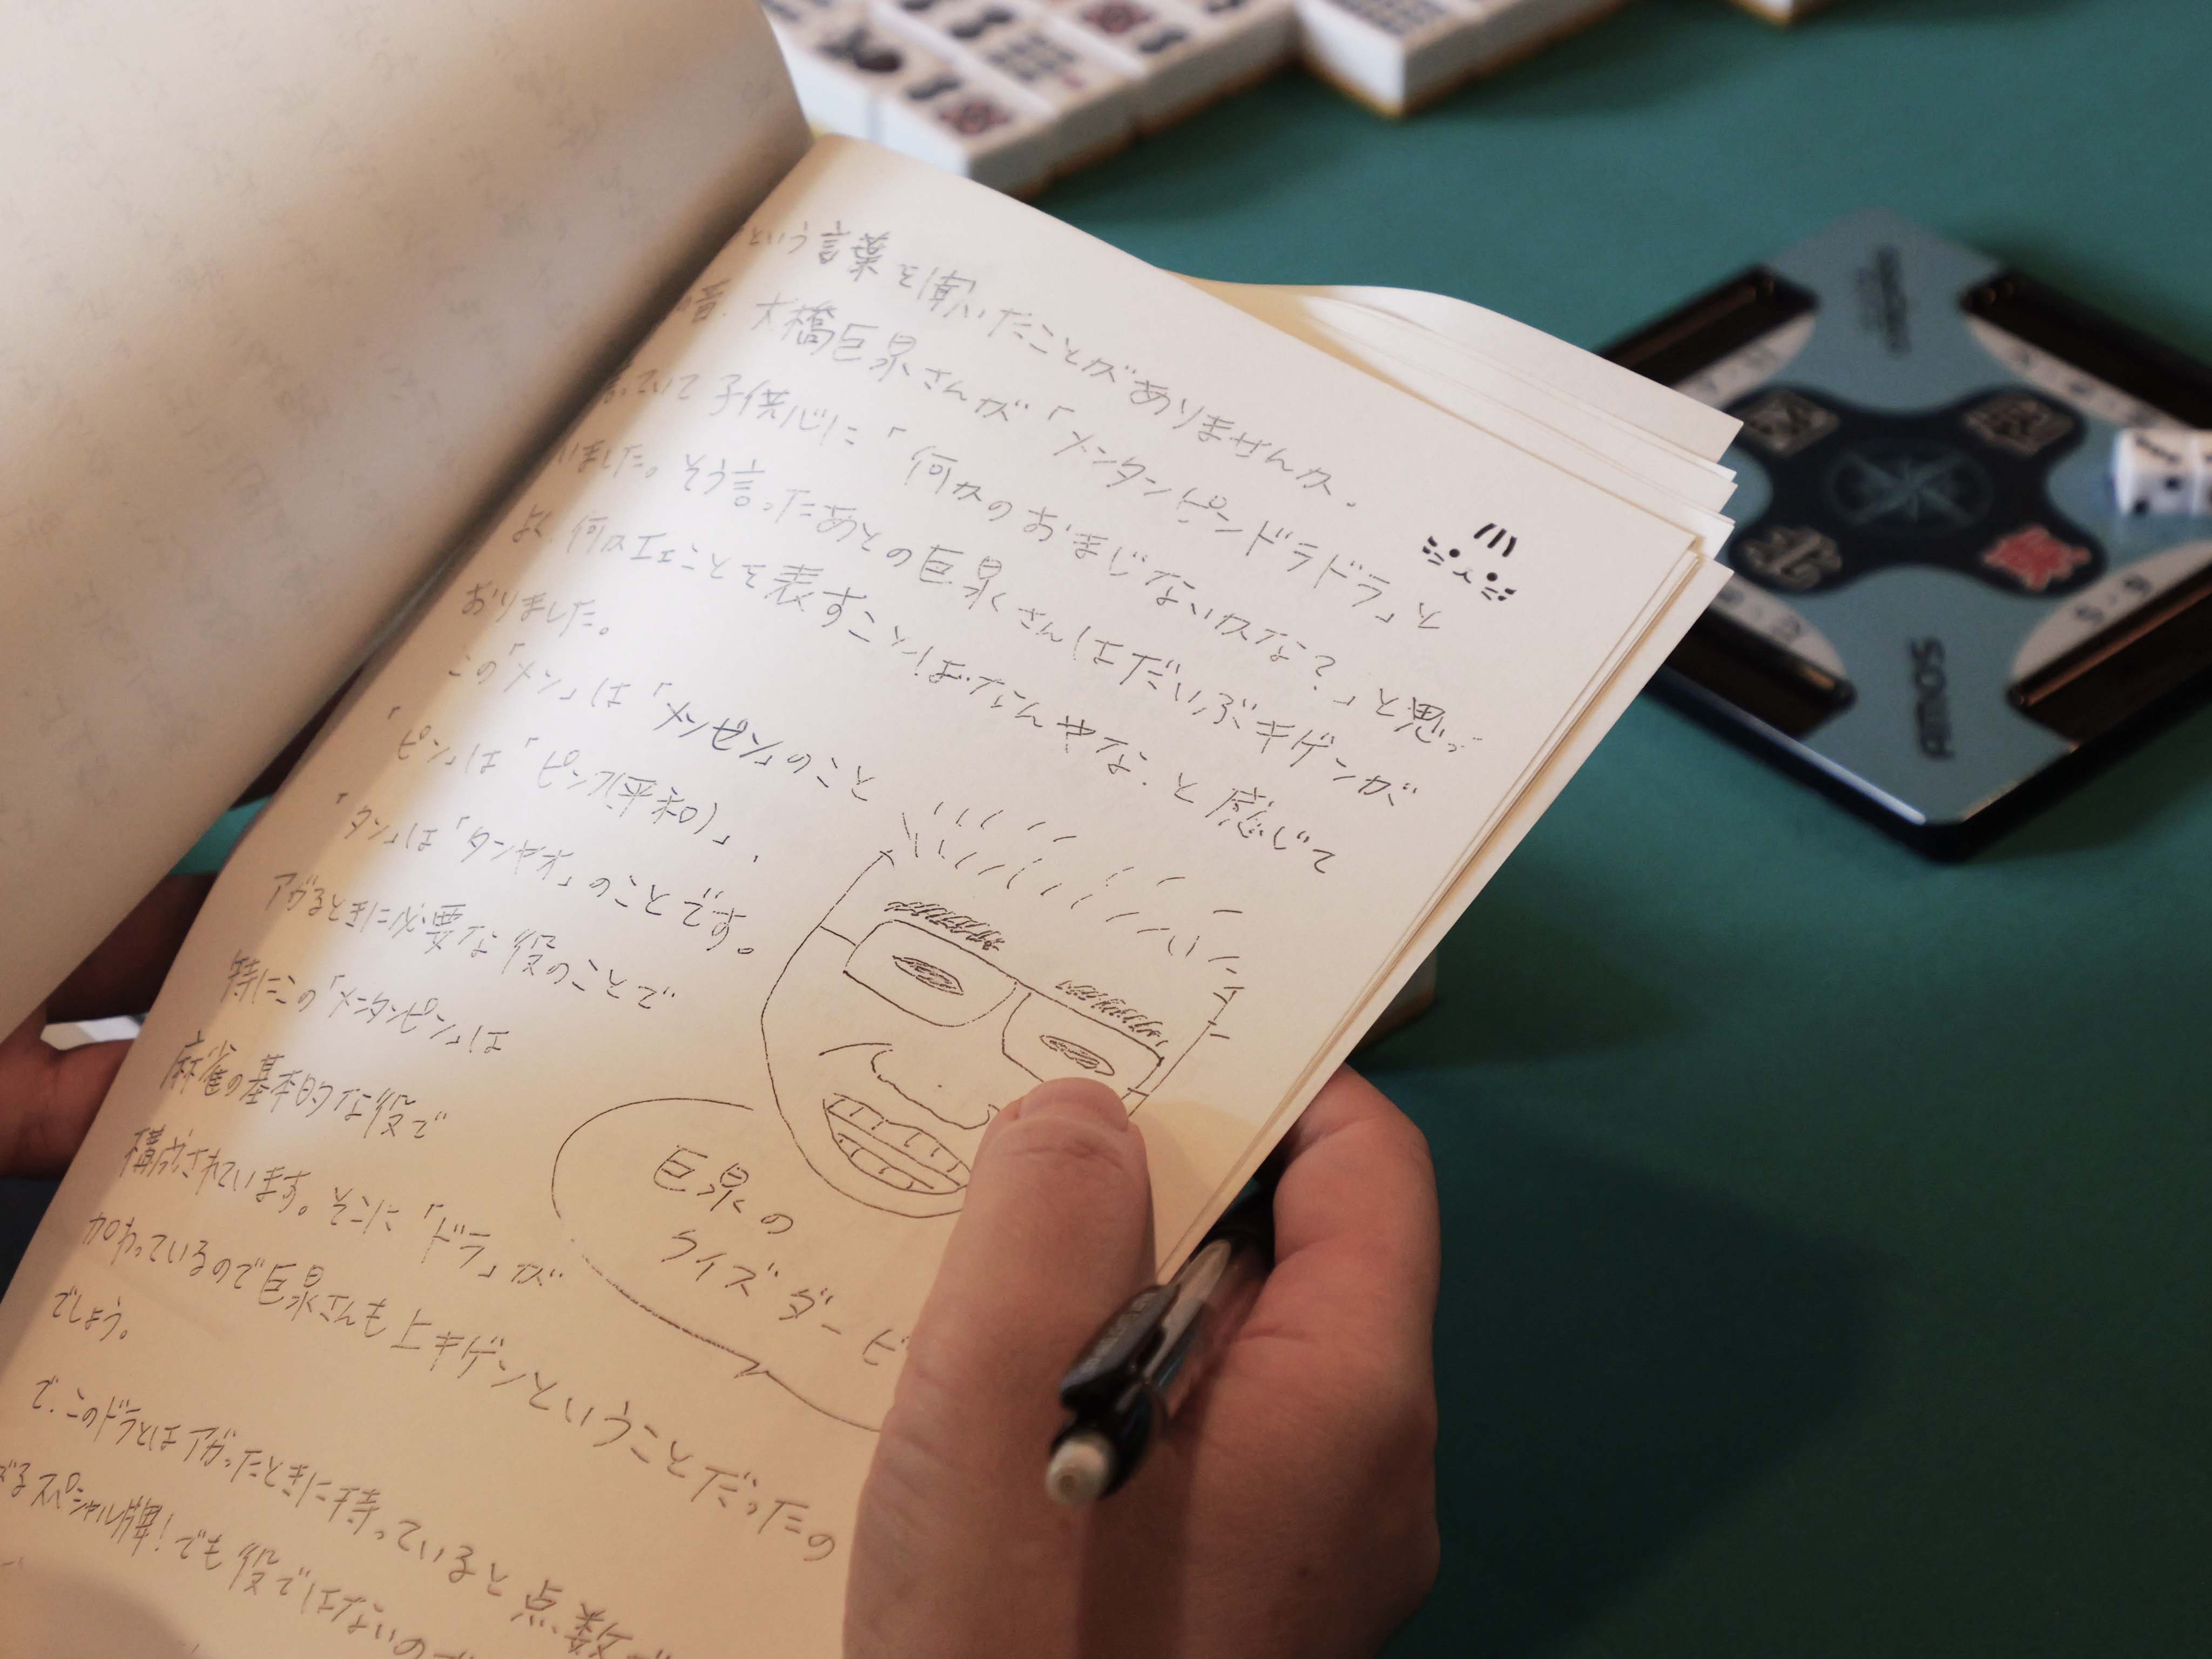 という言葉を聞いたことがありませんか.
昔. 大橋巨泉さんが「メンタンピンドラドラ」と
言っていて子供心に「何かのおまじないかな?」と思っ
いました。そう言ったあとの巨泉さんはだいぶキゲンが
よく. 何かエエことを表すことばなんやな.と感じて
おりました。
この「メン」は「メンゼン」のこと
「ピン」は「ピンフ(平和)」、
「タン」は「タンヤオ」のことです。
アガるときに必要な役のことで
特にこの「メンタンピン」は
麻雀の基本的な役で
構成されています。そこに「ドラ」が
加わっているので巨泉さんも上キゲンということだったの
でしょう。
で.このドラとはアガったときに持っていると点数が
スペシャル牌!でも役ではないので
巨泉の
クイズダービ
AMOS
AMOS
北
東